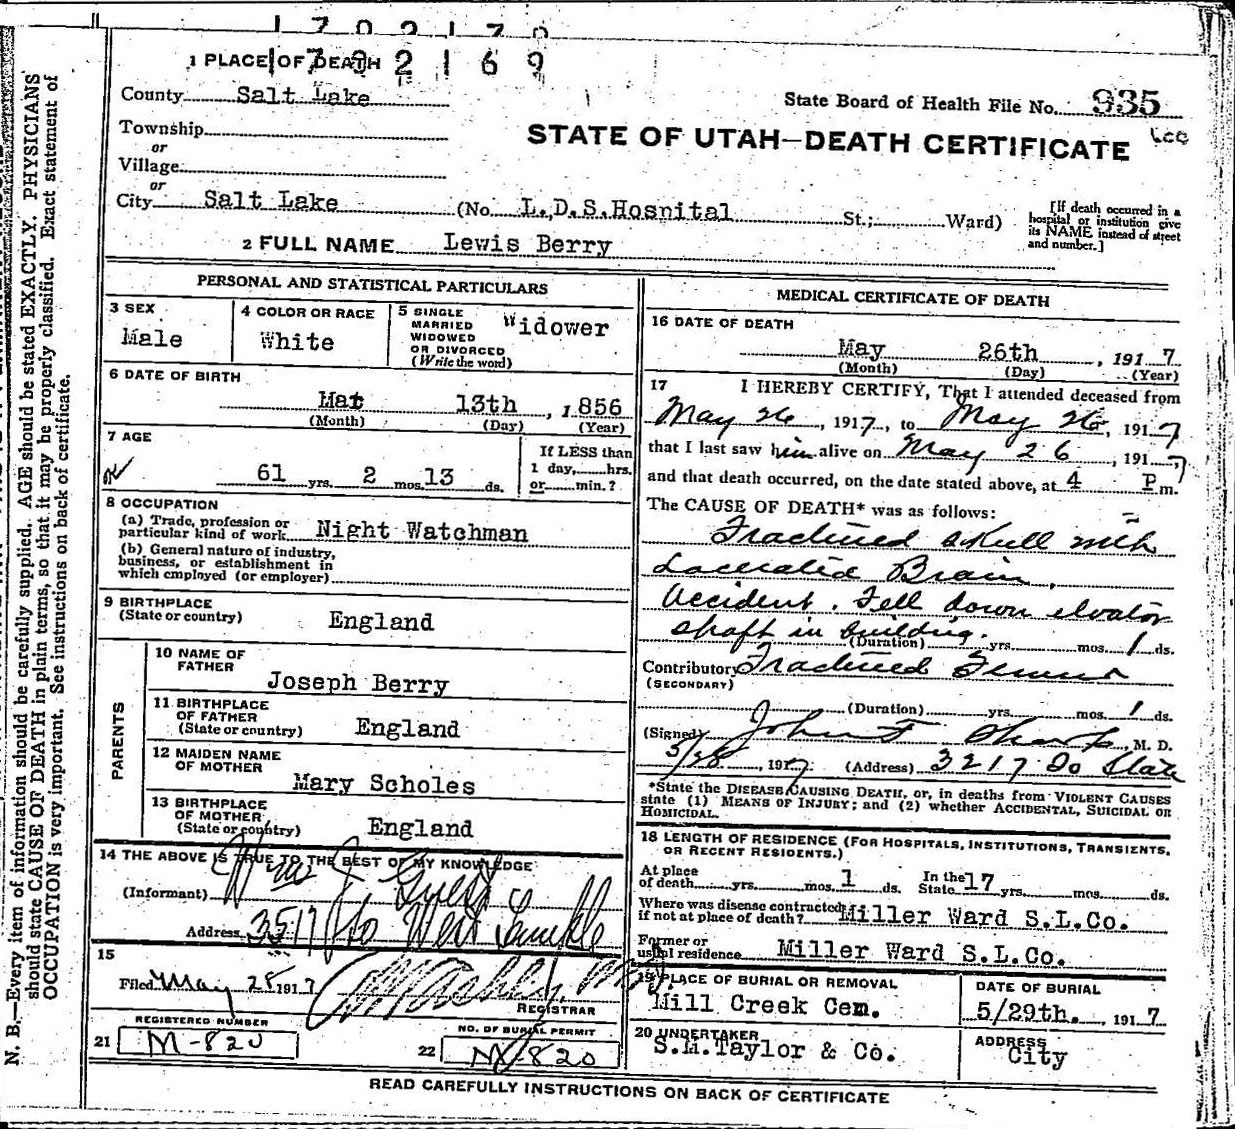 1702170
1702169
1 PLACE OF DEATH
County Salt Lake
State Board of Health File No. 935
Township
or
Village
or
STATE OF UTAH—DEATH CERTIFICATE
City Salt Lake (No. L.D.S.Hospital St.; Ward)
[If death occurred in a hospital or institution give its NAME instead of street and number.]
2 FULL NAME Lewis Berry
PERSONAL AND STATISTICAL PARTICULARS
3 SEX
Male
4 COLOR OR RACE
White
5 SINGLE
MARRIED
WIDOWED
OR DIVORCED
(Write the word)
Widower
6 DATE OF BIRTH
13th, 1856
(Month) (Day) (Year)
7 AGE
61 yrs. 2 mos. 13 ds.
If LESS than
1 day, hrs.
or min.?
8 OCCUPATION
(a) Trade, profession or
particular kind of work Night Watchman
(b) General nature of industry,
business, or establishment in
which employed (or employer)
9 BIRTHPLACE
(State or country) England
PARENTS
10 NAME OF
FATHER
Joseph Berry
11 BIRTHPLACE
OF FATHER
(State or country) England
12 MAIDEN NAME
OF MOTHER
Mary Scholes
13 BIRTHPLACE
OF MOTHER
(State or country) England
14 THE ABOVE IS TRUE TO THE BEST OF MY KNOWLEDGE
(Informant)
Address 3517 So West Temple
15
Filed May 28 1917
REGISTRAR
REGISTERED NUMBER
21 M-820
NO. OF BURIAL PERMIT
22 M-820
MEDICAL CERTIFICATE OF DEATH
16 DATE OF DEATH
May 26th, 1917
(Month) (Day) (Year)
17 I HEREBY CERTIFY, That I attended deceased from
May 26, 1917, to May 26, 1917
that I last saw him alive on May 26, 1917
and that death occurred, on the date stated above, at 4 P m.
The CAUSE OF DEATH* was as follows:
Fractured skull with
Lacerated Brain.
Accident. Fell down elvator
shaft in building.
(Duration) yrs. mos. 1 ds.
Contributory Fractured Femur
(SECONDARY)
(Duration) yrs. mos. 1 ds.
(Signed) John F Sharp, M. D.
5/28, 1917. (Address) 3217 So State
*State the DISEASE CAUSING DEATH, or, in deaths from VIOLENT CAUSES
state (1) MEANS OF INJURY; and (2) whether ACCIDENTAL, SUICIDAL OR
HOMICIDAL.
18 LENGTH OF RESIDENCE (FOR HOSPITALS, INSTITUTIONS, TRANSIENTS,
OR RECENT RESIDENTS.)
At place
of death yrs. mos. 1 ds. In the
State 17 yrs. mos. ds.
Where was disease contracted
if not at place of death? Miller Ward S.L.Co.
Former or
usual residence Miller Ward S.L.Co.
19 PLACE OF BURIAL OR REMOVAL
Mill Creek Cem.
DATE OF BURIAL
5/29th., 1917
20 UNDERTAKER
S.M.Taylor & Co.
ADDRESS
City
READ CAREFULLY INSTRUCTIONS ON BACK OF CERTIFICATE
N. B.—Every item of information should be carefully supplied. AGE should be stated EXACTLY. PHYSICIANS
should state CAUSE OF DEATH in plain terms, so that it may be properly classified. Exact statement of
OCCUPATION is very important. See instructions on back of certificate.